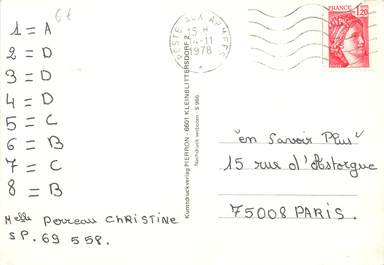 6t
1 = A
2 = D
3 = D
4 = D
5 = C
6 = B
7 = C
8 = B
Melle Perreau CHRISTINE
SP. 69 558.
Kunstdruckverlag PIERRON - 6601 KLEINBLITTERSDORF 2
Nachdruck verboten · S 956
POSTE AUX ARMEES
15 H
-11
1978
FRANCE 1,20
"en Savoir Plus"
15 rue d'Astorgue
75008 PARIS.